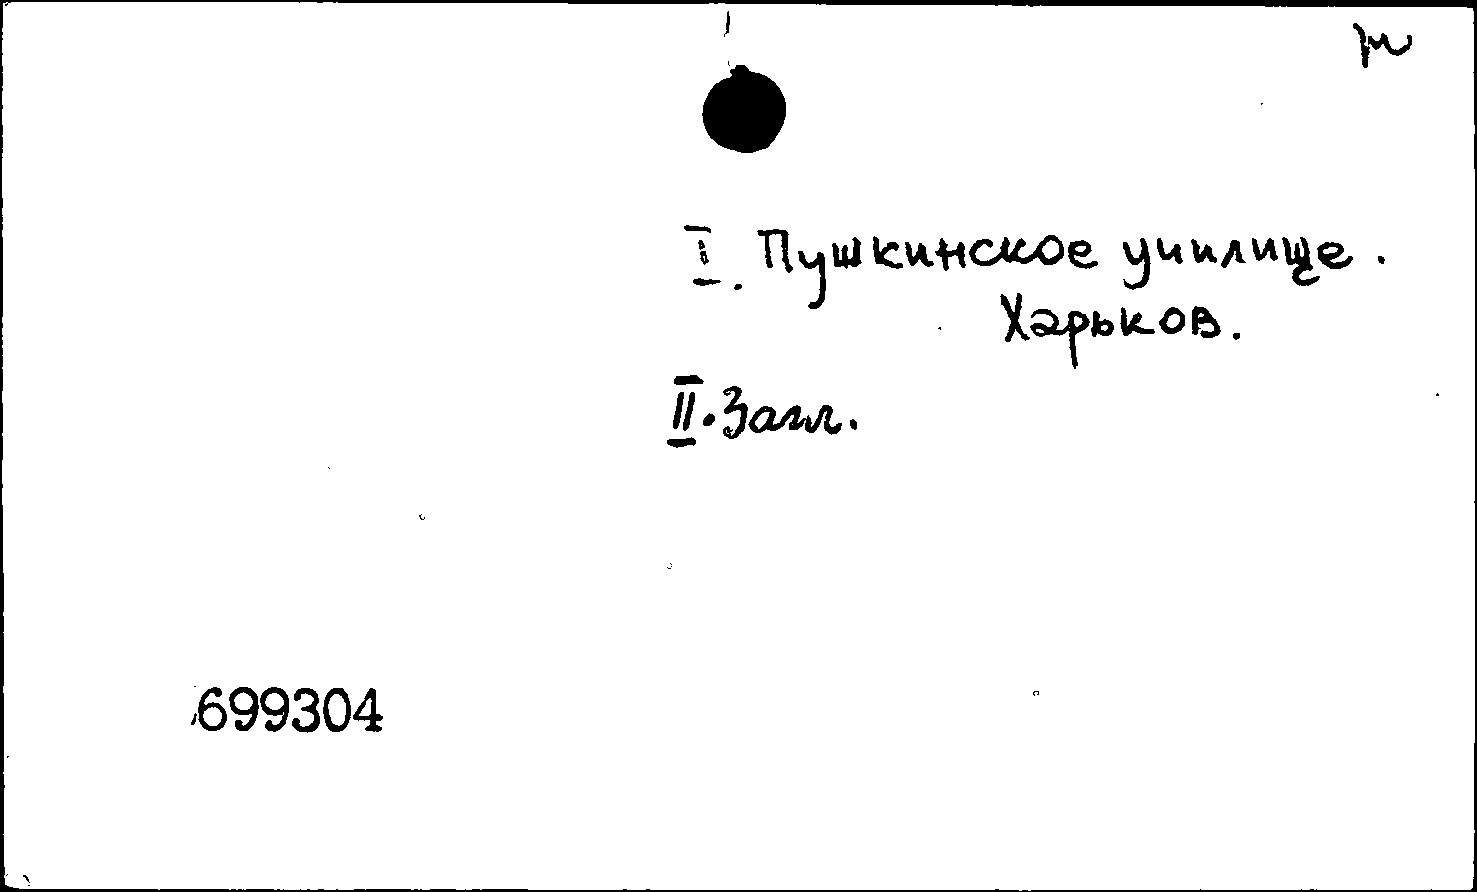 I. Пушкинское училище.
Харьков.
II. Загл.
699304